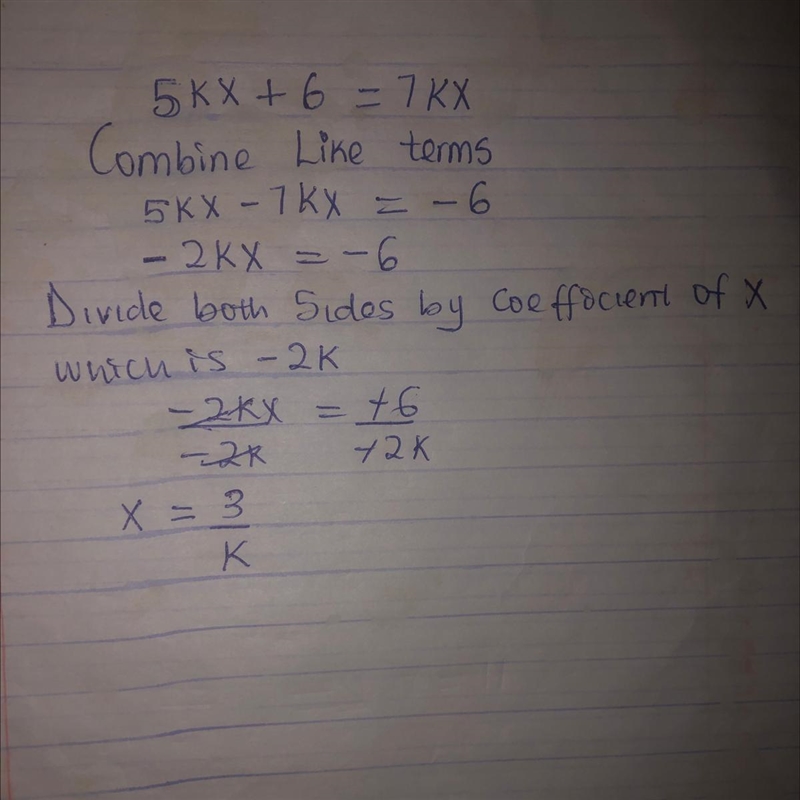 5KX + 6 = 7KX
Combine Like terms
5KX - 7KX = -6
-2KX = -6
Divide both Sides by Coefficient of X
which is -2K
-2KX/-2K = +6/+2K
X = 3/K